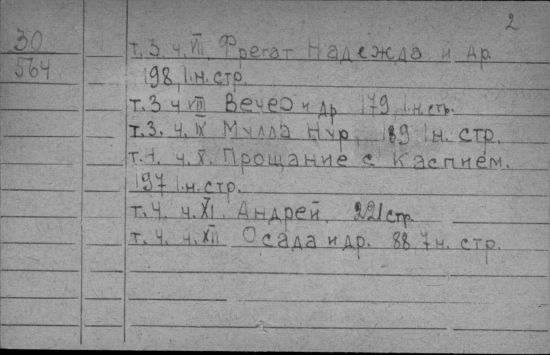 2
30
564
т. 3. ч. VII. Фрегат Надежда и др.
198, 1 н. стр.
т. 3 ч VIII Вечео и др 179, 1 н. стр.
т. 3. ч. IX Мулла Нур, 189 1 н. стр.
т. 4. ч. X. Прощание с Каспием.
197 1 н. стр.
т. 4. ч. XI. Андрей. 221 стр.
т. 4. ч. XII Осада и др. 88. 7 н. стр.